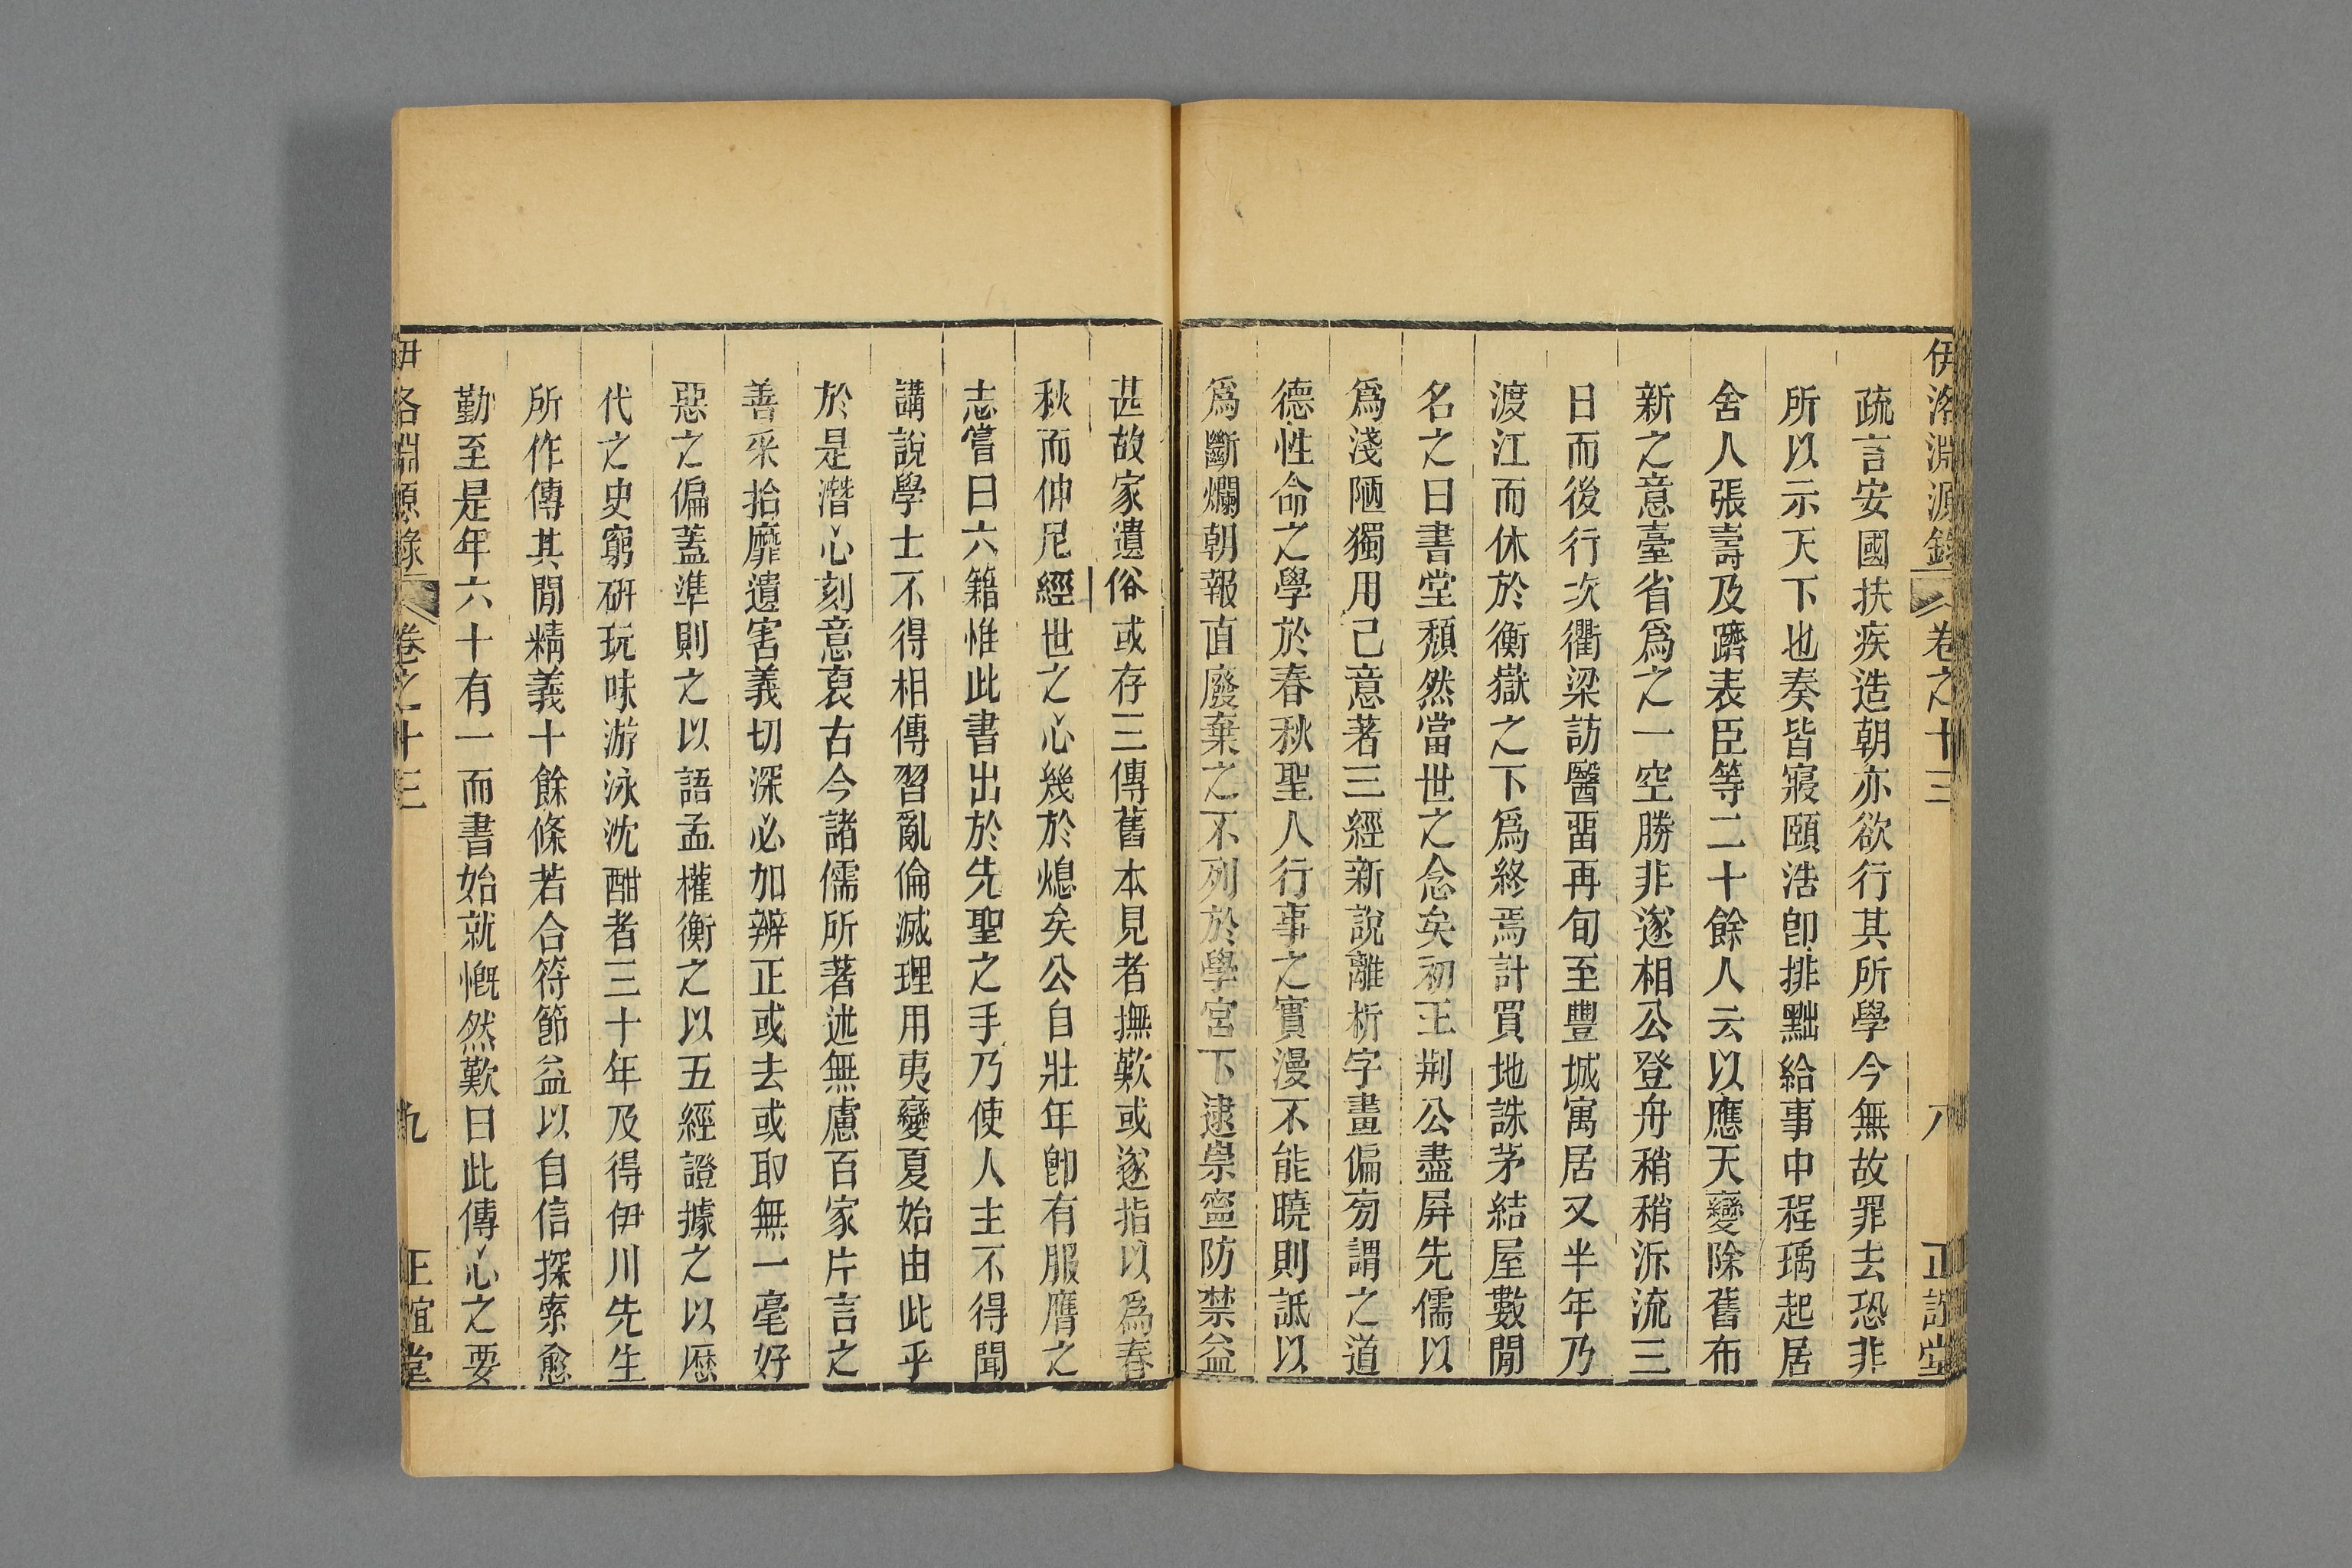 伊洛淵源錄 卷之十三 八 正誼堂
疏言安國扶疾造朝亦欲行其所學今無故罪去恐非
所以示天下也奏皆寢頤浩卽排黜給事中程瑀起居
舍人張壽及躋表臣等二十餘人云以應天變除舊布
新之意臺省爲之一空勝非遂相公登舟稍稍泝流三
日而後行次衢梁訪醫畱再旬至豐城寓居又半年乃
渡江而休於衡嶽之下爲終焉計買地誅茅結屋數閒
名之曰書堂頹然當世之念矣初王荆公盡屏先儒以
爲淺陋獨用己意著三經新說離析字畫偏旁謂之道
德性命之學於春秋聖人行事之實漫不能曉則詆以
爲斷爛朝報直廢棄之不列於學宮下逮崇寧防禁益
甚故家遺俗或存三傳舊本見者撫歎或遂指以爲春
秋而仲尼經世之心幾於熄矣公自壯年卽有服膺之
志嘗曰六籍惟此書出於先聖之手乃使人主不得聞
講說學士不得相傳習亂倫滅理用夷變夏始由此乎
於是潛心刻意裒古今諸儒所著述無慮百家片言之
善采拾靡遺害義切深必加辨正或去或取無一毫好
惡之偏蓋準則之以語孟權衡之以五經證據之以歷
代之史窮硏玩味游泳沈酣者三十年及得伊川先生
所作傳其閒精義十餘條若合符節益以自信探索愈
勤至是年六十有一而書始就慨然歎曰此傳心之要
伊洛淵源錄 卷之十三 九 正誼堂